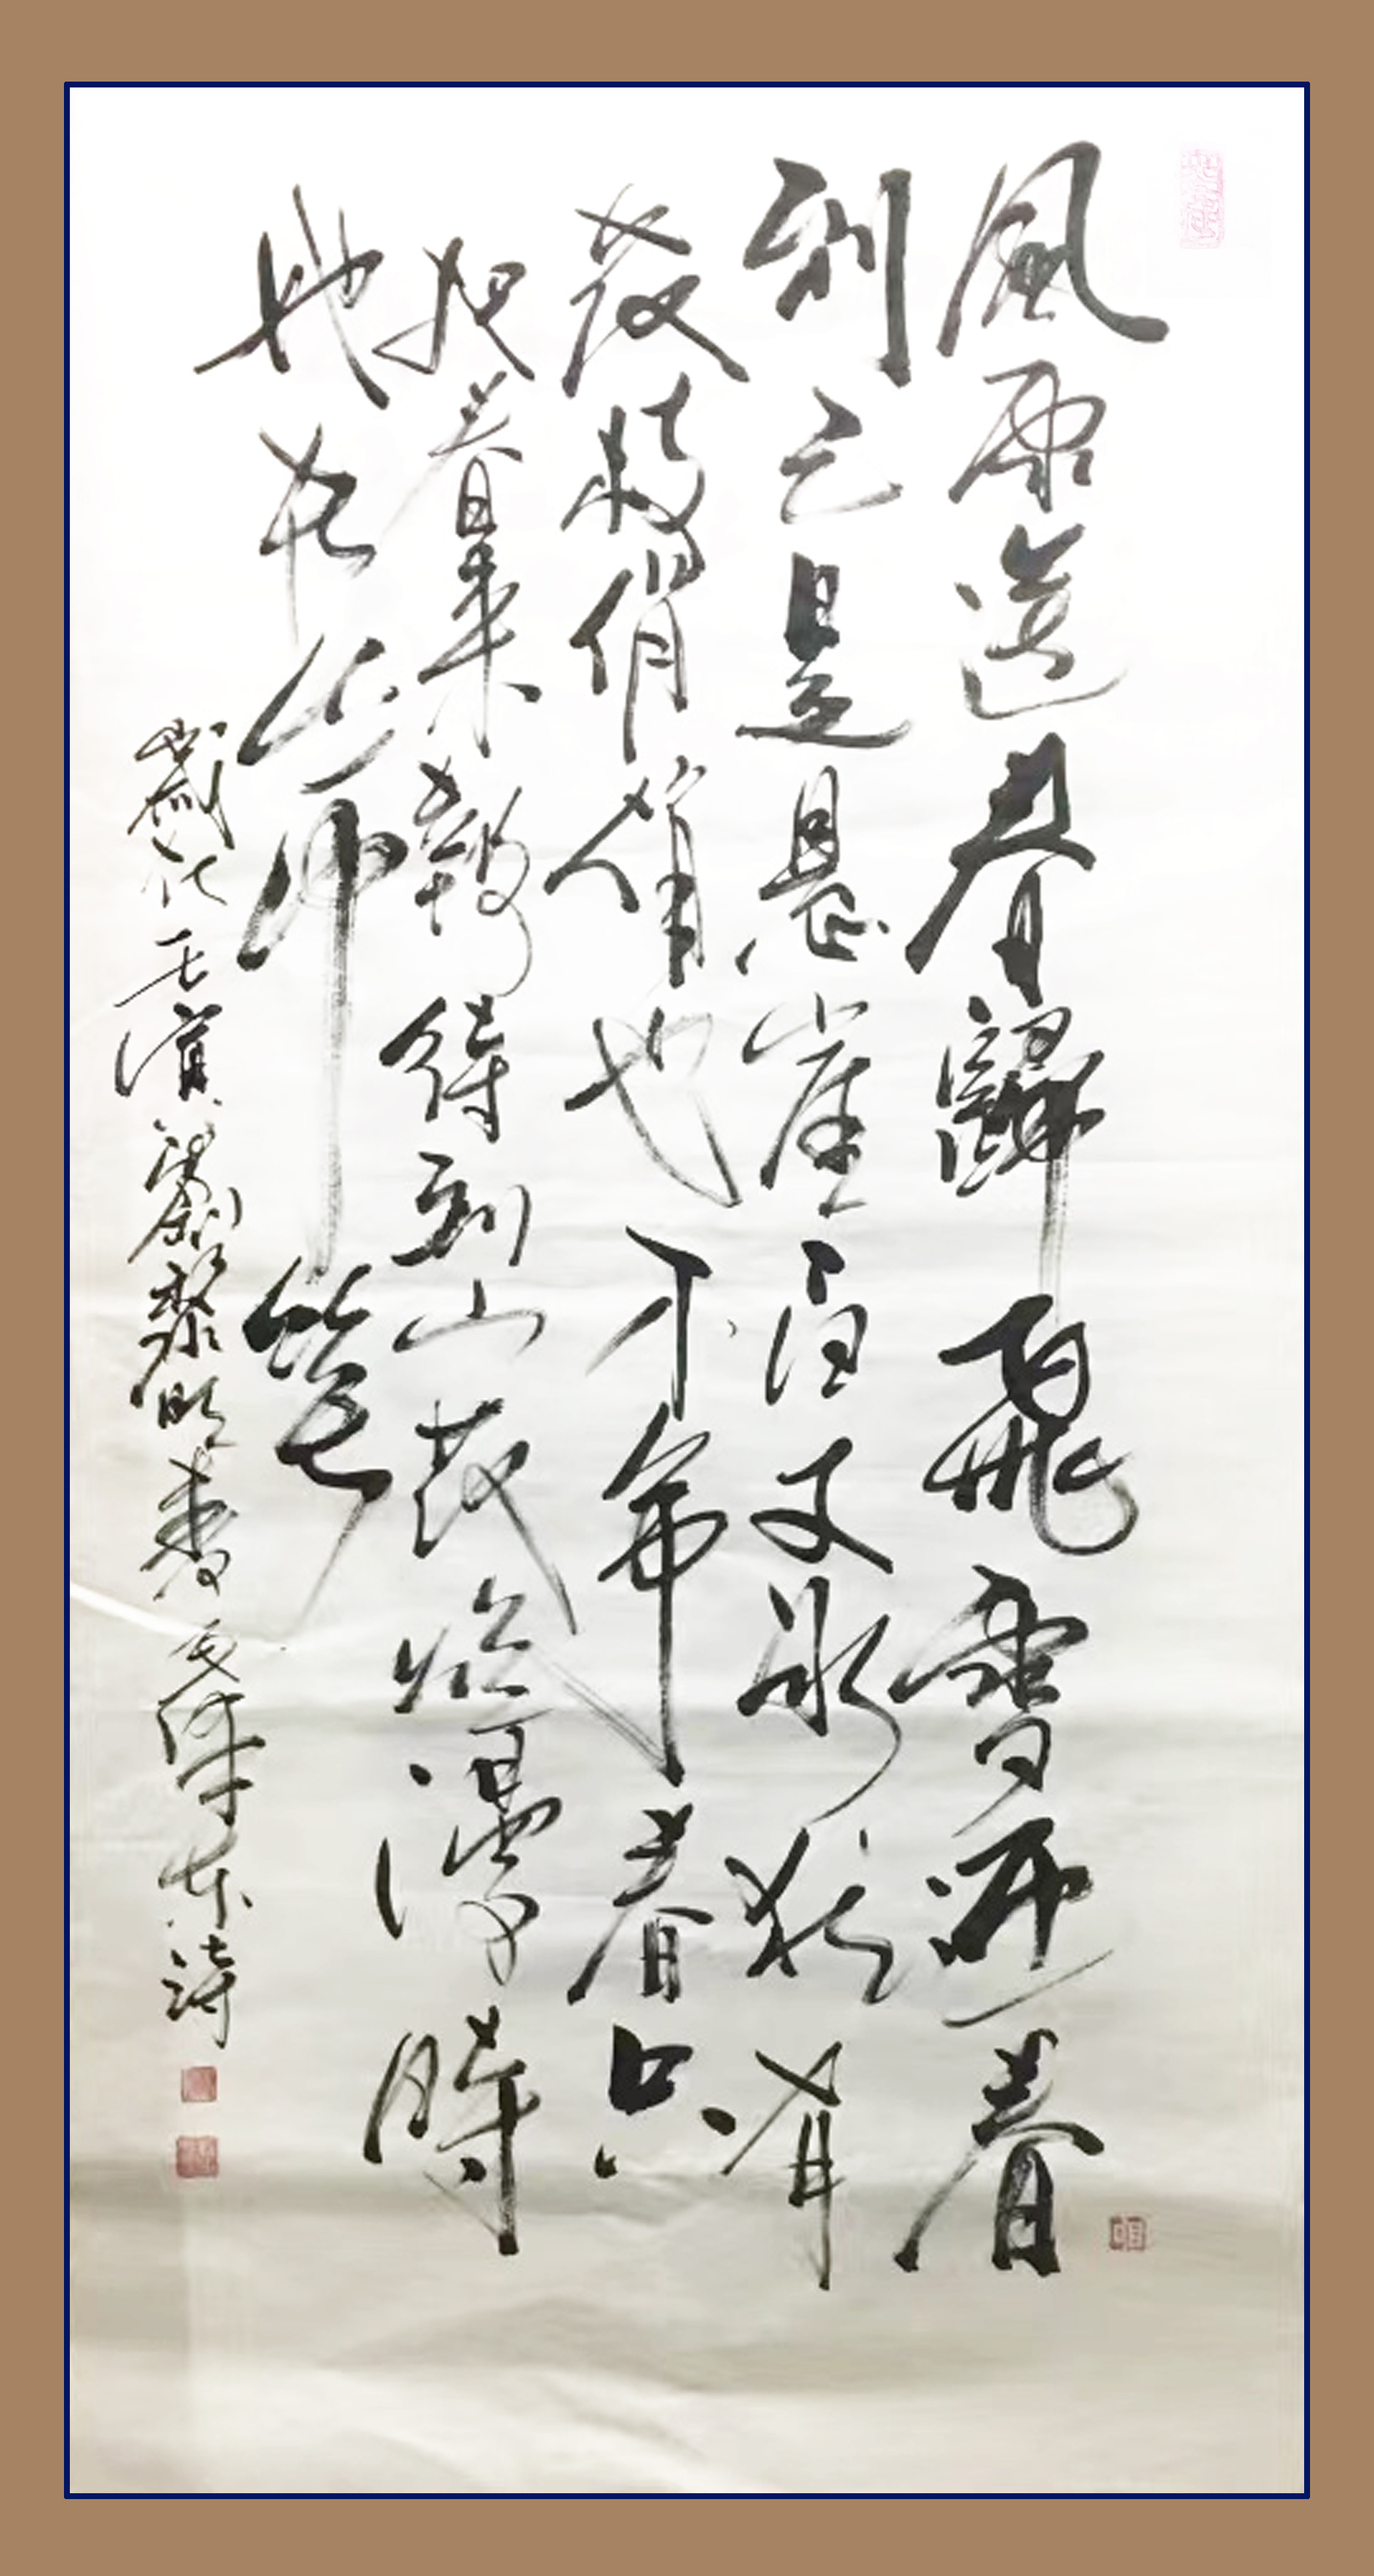 風雨送春歸飛雪迎春
到已是悬崖百丈冰犹有
花枝俏俏也不争春只
把春来報待到山花烂漫時
她在丛中笑
歲次壬寅劉黎明書毛澤東詩